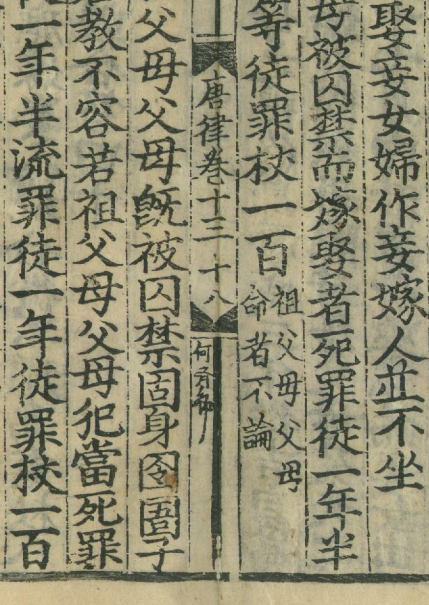 娶妾女婦作妾嫁人並不坐
母被囚禁而嫁娶者死罪徒一年半
等徒罪杖一百
祖父母父母
命者不論
唐律卷十三 十八
何
父母父母既被囚禁固身囹圄子
教不容若祖父母父母犯當死罪
一年半流罪徒一年徒罪杖一百